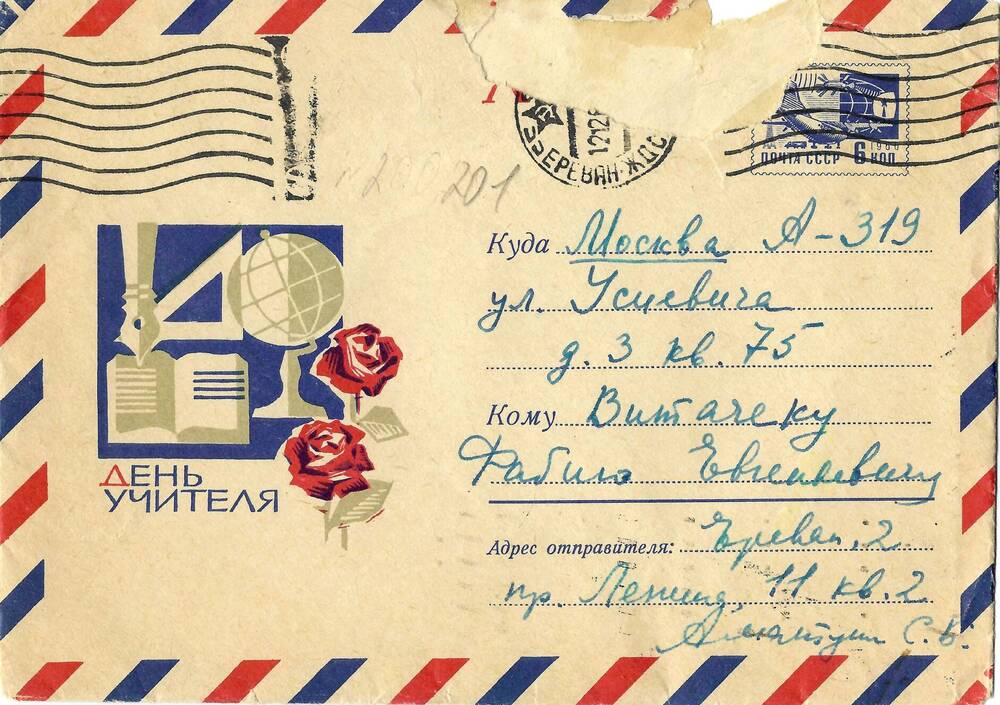 201
ЕРЕВАН-ЖДС
ПОЧТА СССР 6 КОП
1966
Куда Москва А-319
ул. Усиевича
д. 3 кв. 75
Кому Витачеку
Фабию Евгеньевичу
ДЕНЬ
УЧИТЕЛЯ
Адрес отправителя: Ереван, 2
пр. Ленина, 11 кв. 2
С. Б.